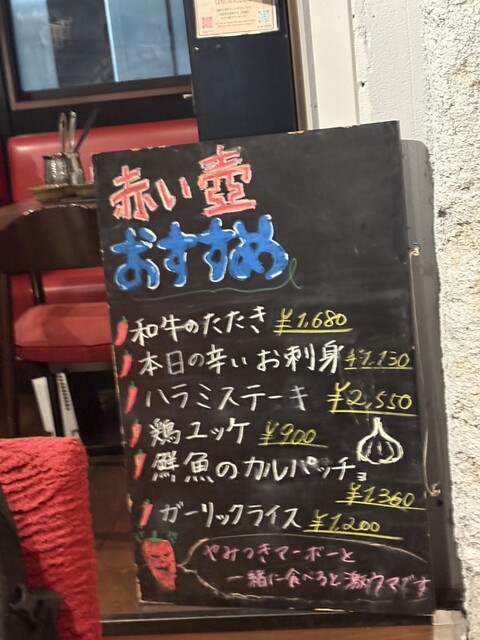 赤い壺
おすすめ
和牛のたたき ¥1,680
本日の辛いお刺身 ¥1,130
ハラミステーキ ¥2,550
鶏ユッケ ¥900
鮮魚のカルパッチョ
¥1,360
ガーリックライス ¥1,200
やみつきマーボーと
一緒に食べると激ウマです